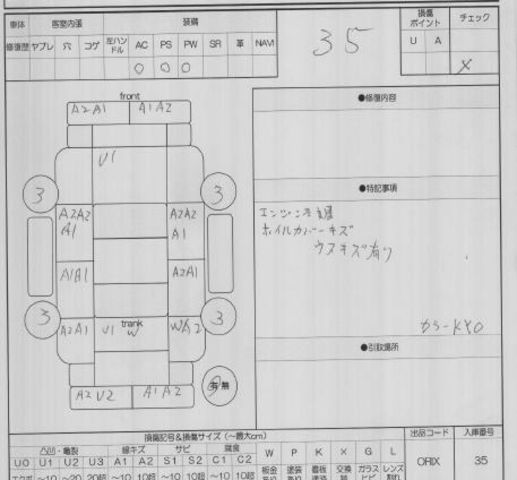 車体 客室内張 装備 損傷ポイント チェック
修復歴 ヤブレ 穴 コゲ 左ハンドル AC PS PW SR 革 NAVI U A
○ ○ ○ X
35
front
A2A1 A1A2
U1
3 3
A2A2 A2A2
A1 A1
A1A1 A2A1
3 3
A2A1 U1 trank W
A2U2 A1A2
有 無
●修復内容
●特記事項
エンジン不調
ホイルカバーキズ
ウスキズ有り
●引取場所
損傷記号&損傷サイズ(~最大cm) 出品コード 入庫番号
凸凹・亀裂 線キズ サビ 腐食 W P K X G L
U0 U1 U2 U3 A1 A2 S1 S2 C1 C2 ORIX 35
エクボ ~10 ~20 20超 ~10 10超 ~10 10超 ~10 10超 板金 塗装 看板 交換 ガラス レンズ